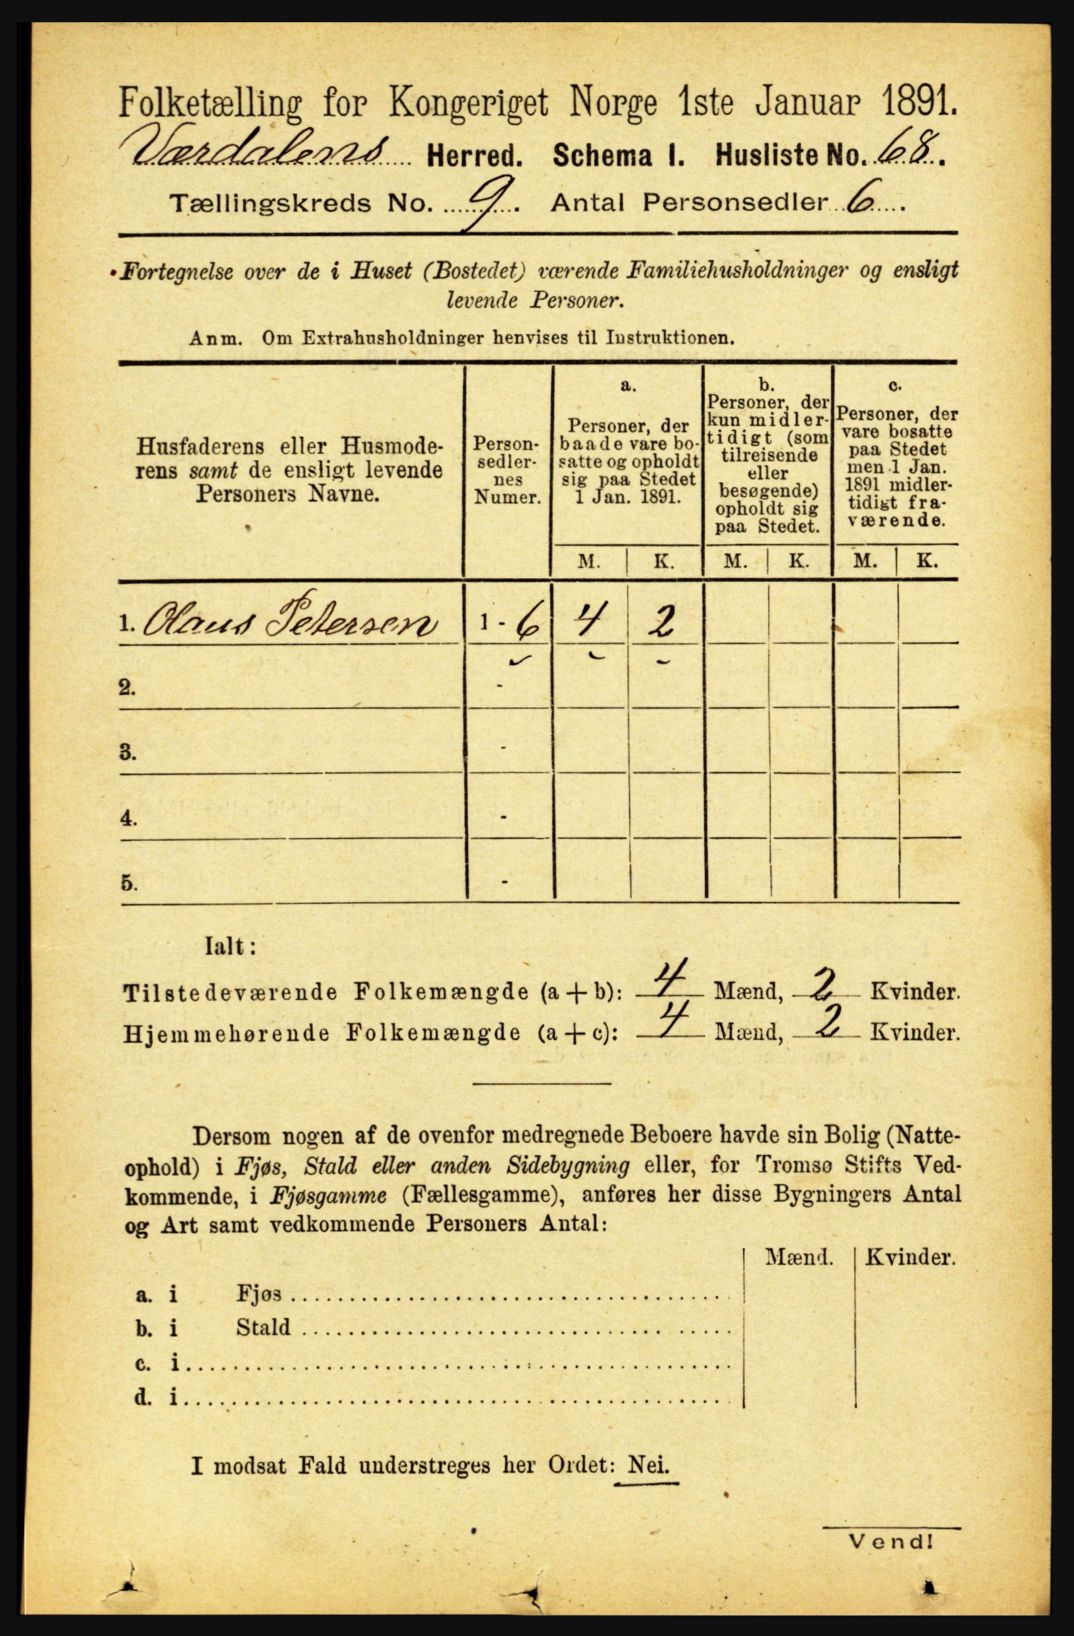 Folketælling for Kongeriget Norge 1ste Januar 1891.
Værdalens Herred. Schema I. Husliste No. 68.
Tællingskreds No. 9. Antal Personsedler 6.
Fortegnelse over de i Huset (Bostedet) værende Familiehusholdninger og ensligt
levende Personer.
Anm. Om Extrahusholdninger henvises til Instruktionen.
Husfaderens eller Husmode-
rens samt de ensligt levende
Personers Navne.
Person-
sedler-
nes
Numer.
a.
Personer, der
baade vare bo-
satte og opholdt
sig paa Stedet
1 Jan. 1891.
b.
Personer, der
kun midler-
tidigt (som
tilreisende
eller
besøgende)
opholdt sig
paa Stedet.
c.
Personer, der
vare bosatte
paa Stedet
men 1 Jan.
1891 midler-
tidigt fra-
værende.
M. K. M. K. M. K.
1. Olaus Petersen 1 - 6 4 2
2. -
3. -
4. -
5. -
Ialt:
Tilstedeværende Folkemængde (a + b): 4 Mænd, 2 Kvinder.
Hjemmehørende Folkemængde (a + c): 4 Mænd, 2 Kvinder.
Dersom nogen af de ovenfor medregnede Beboere havde sin Bolig (Natte-
ophold) i Fjøs, Stald eller anden Sidebygning eller, for Tromsø Stifts Ved-
kommende, i Fjøsgamme (Fællesgamme), anføres her disse Bygningers Antal
og Art samt vedkommende Personers Antal:
Mænd. Kvinder.
a. i Fjøs
b. i Stald
c. i
d. i
I modsat Fald understreges her Ordet: Nei.
Vend!